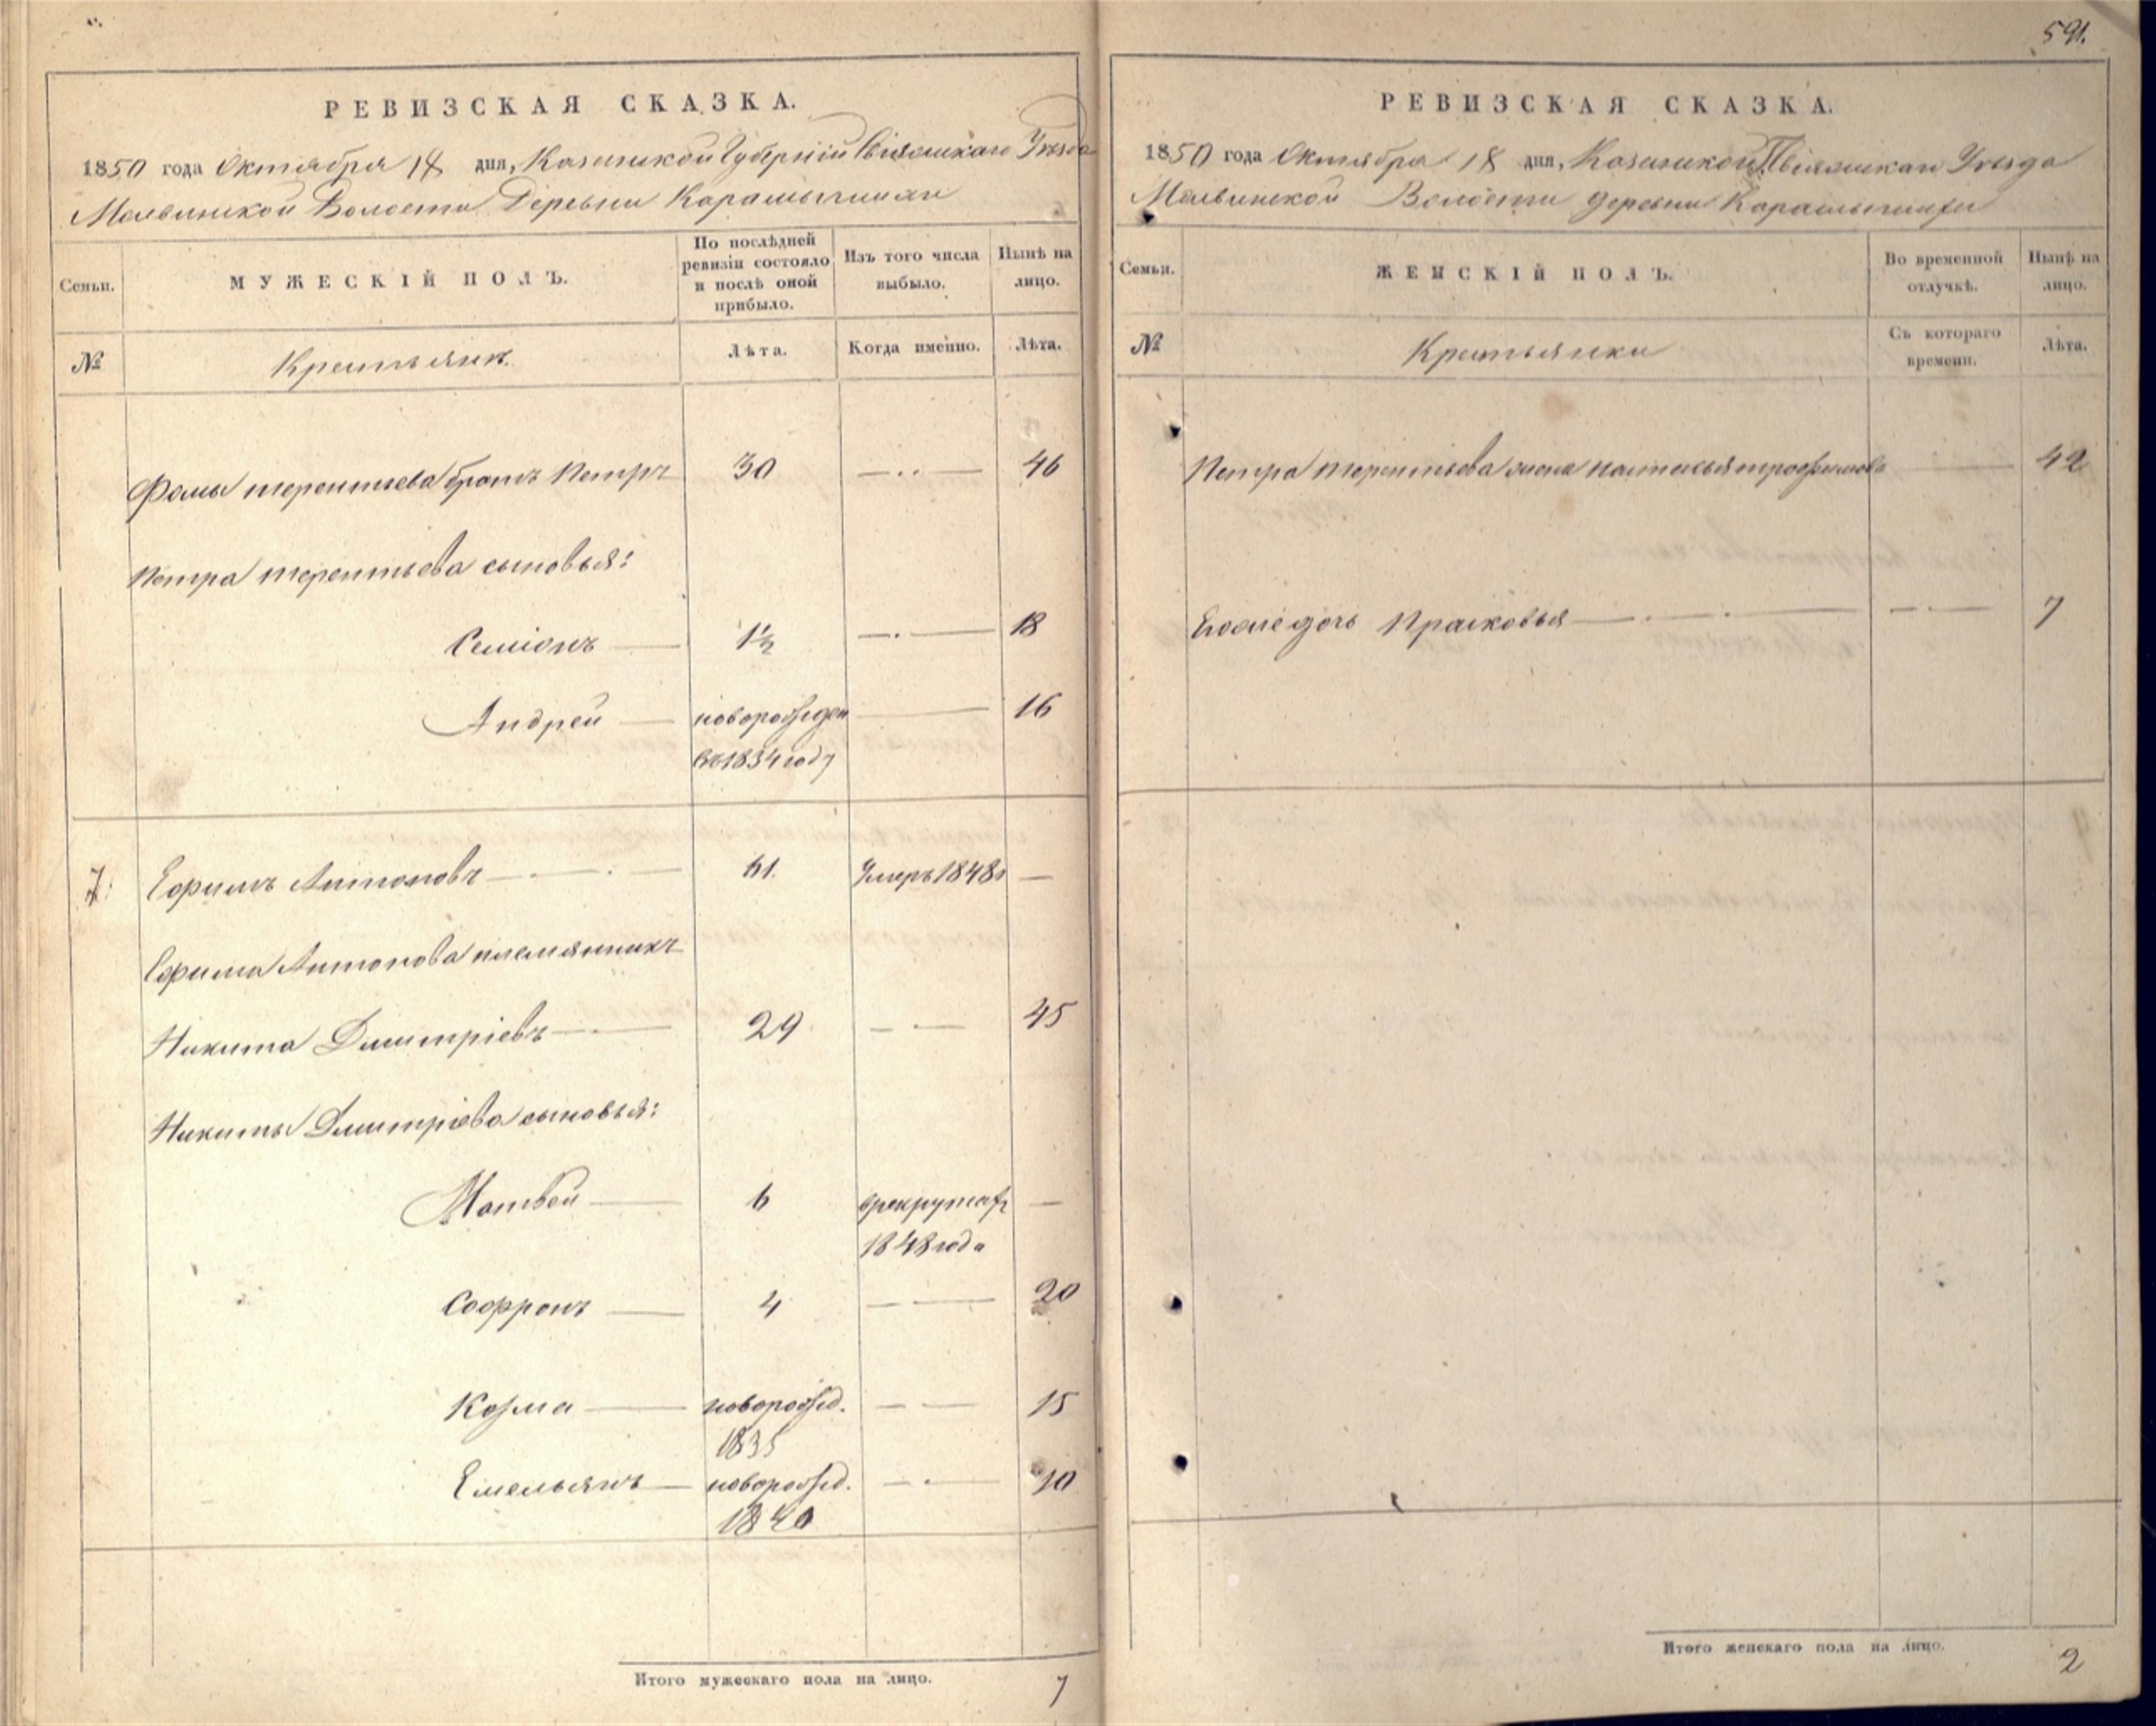 591.
РЕВИЗСКАЯ СКАЗКА.
1850 года Октября 18 дня, Казанской Губернии Свіяжскаго Уезда
Молвинской Волости Деревни
Семьи.
МУЖЕСКІЙ ПОЛЪ.
По послѣдней ревизіи состояло и послѣ оной прибыло.
Изъ того числа выбыло.
Нынѣ на лицо.
№
Крестьянъ.
Лѣта.
Когда именно.
Лѣта.
Фомы терентьева братъ Петръ 30 46
Петра терентьева сыновья:
Семіонъ 1½ 18
Андрей новорожден 16
въ 1834 году
7. Ефимъ Антоновъ 51. Умеръ 1848 —
Ефима Антонова племянникъ
Никита Дмитріевъ 29 45
Никиты Дмитріева сыновья:
Матвей 6 врекрутахъ —
1848 года
Софронъ 4 20
Козма новорожд. 15
1835
Емельянъ новорожд. 10
1840
Итого мужескаго пола на лицо. 7
РЕВИЗСКАЯ СКАЗКА.
1850 года Октября 18 дня, Казанской Уезда
Молвинской Волости деревни
Семьи.
ЖЕНСКІЙ ПОЛЪ.
Во временной отлучкѣ.
Нынѣ на лицо.
№
Крестьянки
Съ котораго времени.
Лѣта.
Петра терентьева жена настасья трофимова 42
Ево дочь Прасковья 7
Итого женскаго пола на лицо. 2